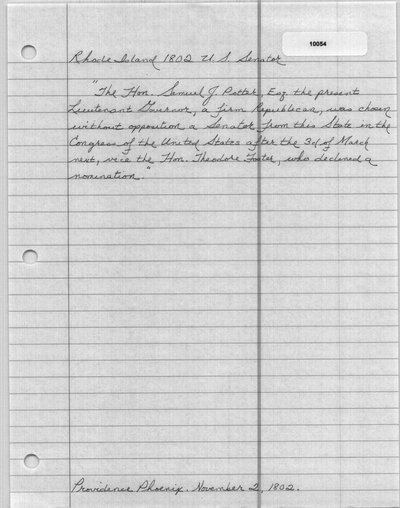 10054
Rhode Island 1802 U.S. Senator
"The Hon. Samuel J. Potter, Esq. the present
Lieutenant Governor, a firm Republican, was chosen
without opposition a Senator from this State in the
Congress of the United States after the 3d of March
next, vice the Hon. Theodore Foster, who declined a
nomination."
Providence Phoenix. November 2, 1802.